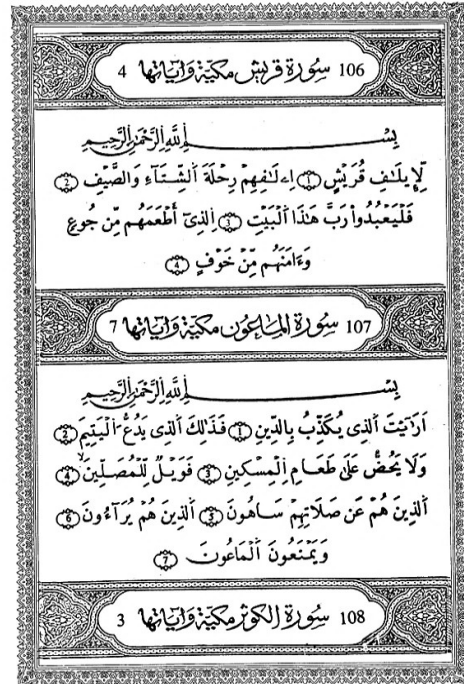 106 سورة قريش مكية وآياتها 4
بِسْمِ اِ۬للَّهِ اِ۬لرَّحْمَٰنِ اِ۬لرَّحِيمِ
لِإِيلَٰفِ قُرَيْشٍ ① اِ۪لَٰفِهِمْ رِحْلَةَ اَ۬لشِّتَآءِ وَالصَّيْفِ ②
فَلْيَعْبُدُواْ رَبَّ هَٰذَا اَ۬لْبَيْتِ ③ اِ۬لذِيٓ أَطْعَمَهُم مِّن جُوعٍ
وَءَامَنَهُم مِّنْ خَوْفٍ ④
107 سورة الماعون مكية وآياتها 7
بِسْمِ اِ۬للَّهِ اِ۬لرَّحْمَٰنِ اِ۬لرَّحِيمِ
اَرَٰٓيْتَ اَ۬لذِي يُكَذِّبُ بِالدِّينِ ① فَذَٰلِكَ اَ۬لذِي يَدُعُّ اُ۬لْيَتِيمَ ②
وَلَا يَحُضُّ عَلَىٰ طَعَامِ اِ۬لْمِسْكِينِ ③ فَوَيْلٌ لِّلْمُصَلِّينَ ④
اَ۬لذِينَ هُمْ عَن صَلَاتِهِمْ سَاهُونَ ⑤ اَ۬لذِينَ هُمْ يُرَآءُونَ ⑥
وَيَمْنَعُونَ اَ۬لْمَاعُونَ ⑦
108 سورة الكوثر مكية وآياتها 3